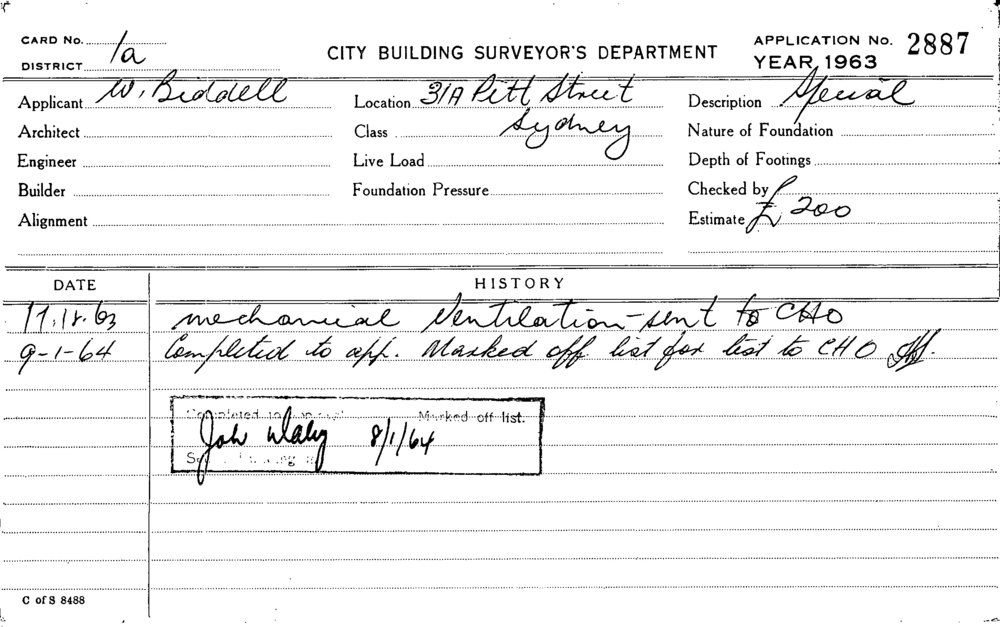 CARD No. 1a
DISTRICT
CITY BUILDING SURVEYOR'S DEPARTMENT
APPLICATION No. 2887
YEAR 1963
Applicant W. Biddell
Location 31A Pitt Street
Description Special
Architect
Class Sydney
Nature of Foundation
Engineer
Live Load
Depth of Footings
Builder
Foundation Pressure
Checked by
Alignment
Estimate £200
DATE
HISTORY
mechanical Ventilation - sent to CHO
9-1-64 Completed to app. Marked off list for test to CHO
Completed to approval Marked off list.
8/1/64
C of S 8488